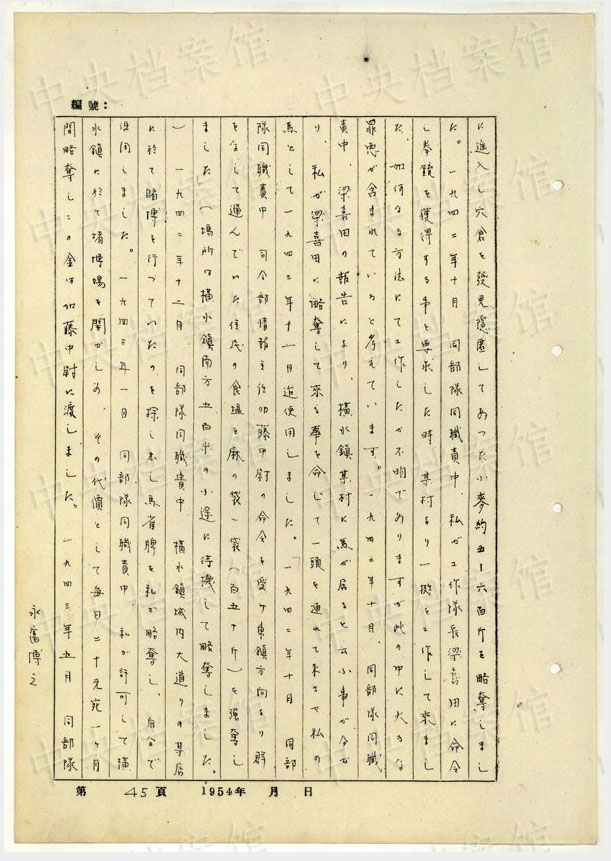 編號：
に進入し穴倉を發見隠匿してあった小麥約五－六百斤を略奪しまし
た。一九四二年十月 同部隊同職責中、私が工作隊長梁喜田に命令
し拳銃を獲得する事を要求した時 某村より一挺を工作して来まし
た、如何なる方法にて工作したか不明でありますが此の中に大きな
罪悪が含まれていると考えています。一九四二年十月、同部隊同職
責中、梁喜田の報告により、橫水鎮某村に馬が居ると云ふ事が分か
り、私が梁喜田に略奪して来る事を命じて一頭を連れて来させ私の
馬として一九四三年十一月迄使用しました。一九四二年十月 同部
隊同職責中 司令部情報主任加藤中尉の命令を受け東鎮方向より群
をなして運んでいた住民の食塩を麻の袋一袋（百五十斤）を強奪し
ました（場所は橫水鎮南方五百米の小道に待機して略奪しました。
）一九四二年十二月 同部隊同職責中 橫水鎮城内大道りの某店
に於て賭博を行っていたのを探し出し馬雀牌を私が略奪し、自分で
使用しました。一九四三年一月 同部隊同職責中、私が許可して橫
水鎮に於て賭博場を開かしめ、その代價として毎日二十元宛一ヶ月
間略奪しこの金は加藤中尉に渡しました。一九四三年五月 同部隊
永富博之
第 45頁 1954年 月 日
中央档案馆